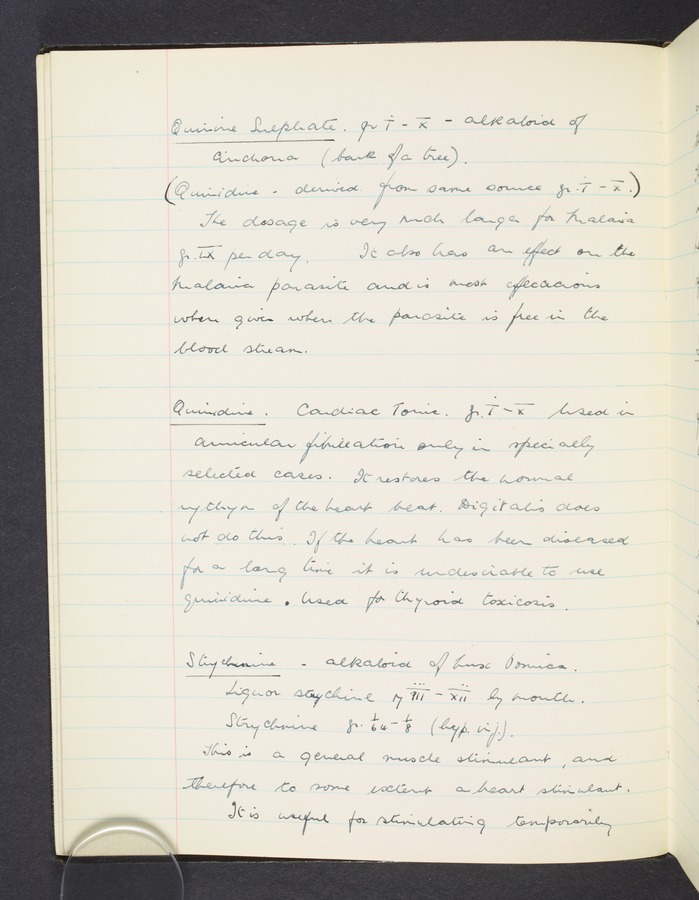 Quinine Sulphate. gr ī - x̄ - alkaloid of
cinchona (bark of a tree).
(Quinidine - derived from same source gr. ī - x̄.)
The dosage is very much larger for Malaria
gr. per day. It also has an effect on the
Malaria parasite and is most effecacious
when given when the parasite is free in the
blood stream.
Quinidine. Cardiac Tonic. gr. ī - x̄ Used in
auricular fibrillation only in specially
selected cases. It restores the normal
rythym of the heart beat. Digitalis does
not do this. If the heart has been diseased
for a long time it is undesirable to use
quinidine. Used for thyroid toxicosis.
Strychnine - alkaloid of Nux Vomica.
Liquor strychine iii - xii by mouth.
Strychnine gr. 1/64 - 1/8 (hyp. inj.).
This is a general muscle stimulant, and
therefore to some extent a heart stimulant.
It is useful for stimulating temporarily